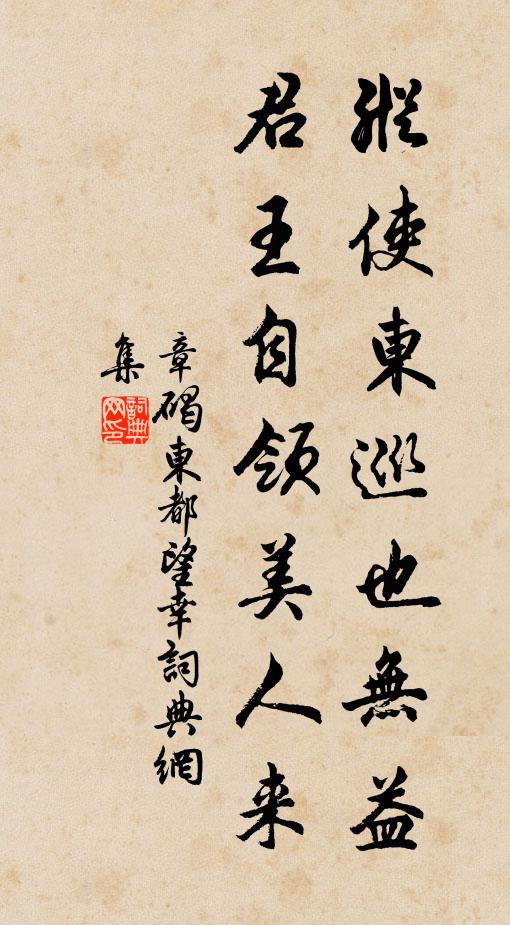 縱使東巡也無益
君王自領美人来
章碣東都望幸詞典網
集
詞典网印